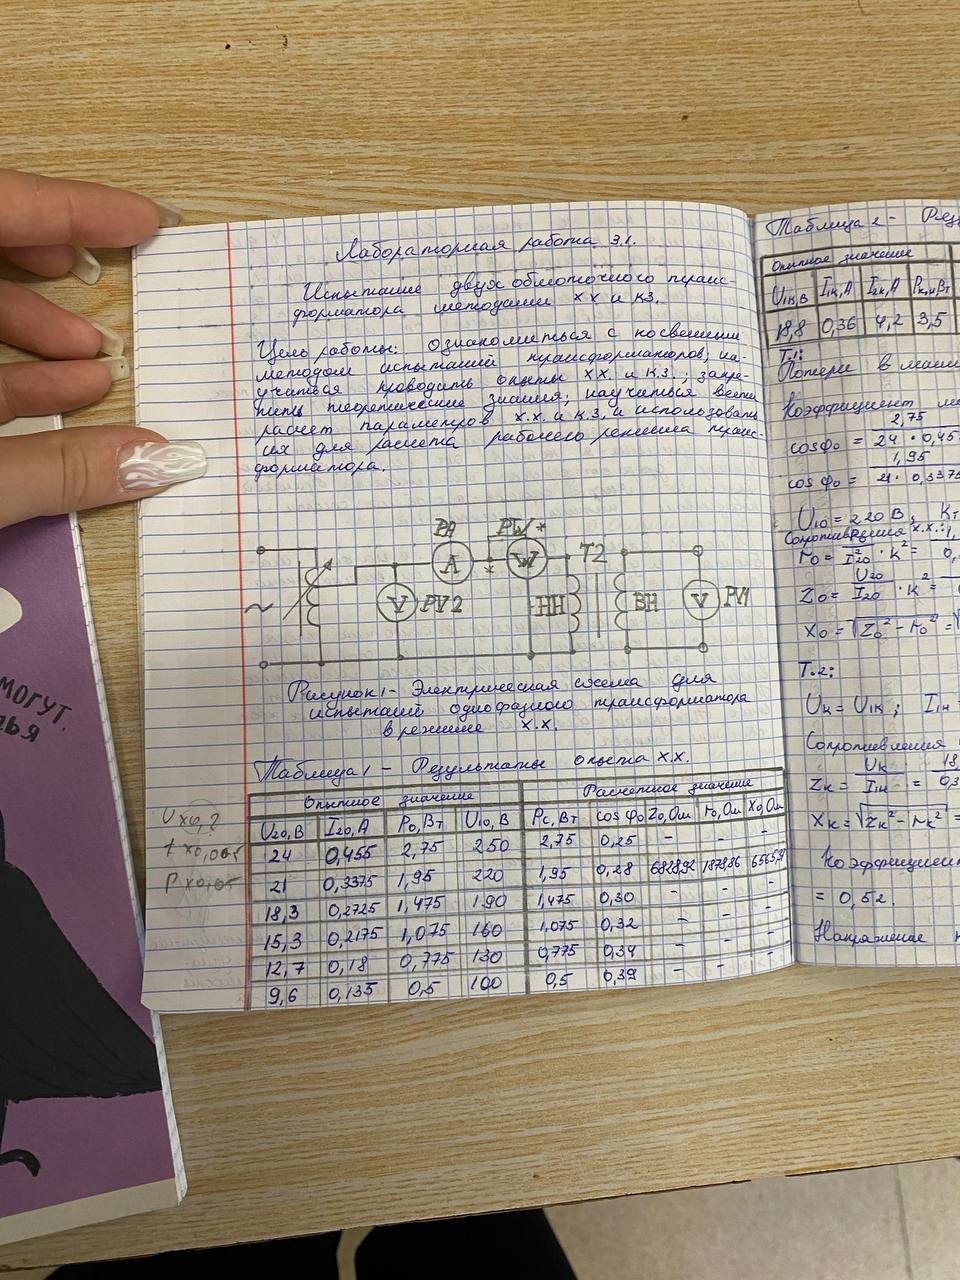 Лабораторная работа 3.1.
Испытание двух обмоточного транс-
форматора методами ХХ и КЗ.
Цель работы: ознакомиться с косвенным
методом испытаний трансформаторов, на-
учиться проводить опыты ХХ и КЗ; закре-
пить теоретические знания; научиться вести
расчет параметров х.х. и к.з. и использовать
их для расчета рабочего режима транс-
форматора.
PA PW *
A * W T2
~ V PV2 НН ВН V PV1
Рисунок 1 - Электрическая схема для
испытаний однофазного трансформатора
в режиме х.х.
Таблица 1 - Результаты опыта х.х.
Опытное значение Расчетное значение
U20,В I20,А P0,Вт U10,В Pс,Вт cos φ0 Z0,Ом r0,Ом X0,Ом
24 0,455 2,75 250 2,75 0,25 - - -
21 0,3375 1,95 220 1,95 0,28 6828,92 1878,86
18,3 0,2725 1,475 190 1,475 0,30 - - -
15,3 0,2175 1,075 160 1,075 0,32 - - -
12,7 0,18 0,775 130 0,775 0,34 - - -
9,6 0,135 0,5 100 0,5 0,39 - - -
U x0,2
P x0,05
Таблица 2 - Рез
Опытное значение
U1к,В I1к,А I2к,А Pк,Вт
18,8 0,36 4,2 3,5
Т.1:
Потери в
Коэффициент
cosφ0 = 2,75 / 24 · 0,45
cosφ0 = 1,95 / 21 · 0,3375
U10 = 220 В, Кт
Сопротивления х.х.:
r0 = P0 / I20² · К² =
Z0 = U20 / I20 · К² =
X0 = √Z0² - r0² = √
Т.2:
Uк = U1к; I1н =
Сопротивления
Zк = Uк / I1н = 18 / 0,3
Xк = √Zк² - rк² =
Коэффициент
= 0,52.
Напряжение к
МОГУТ